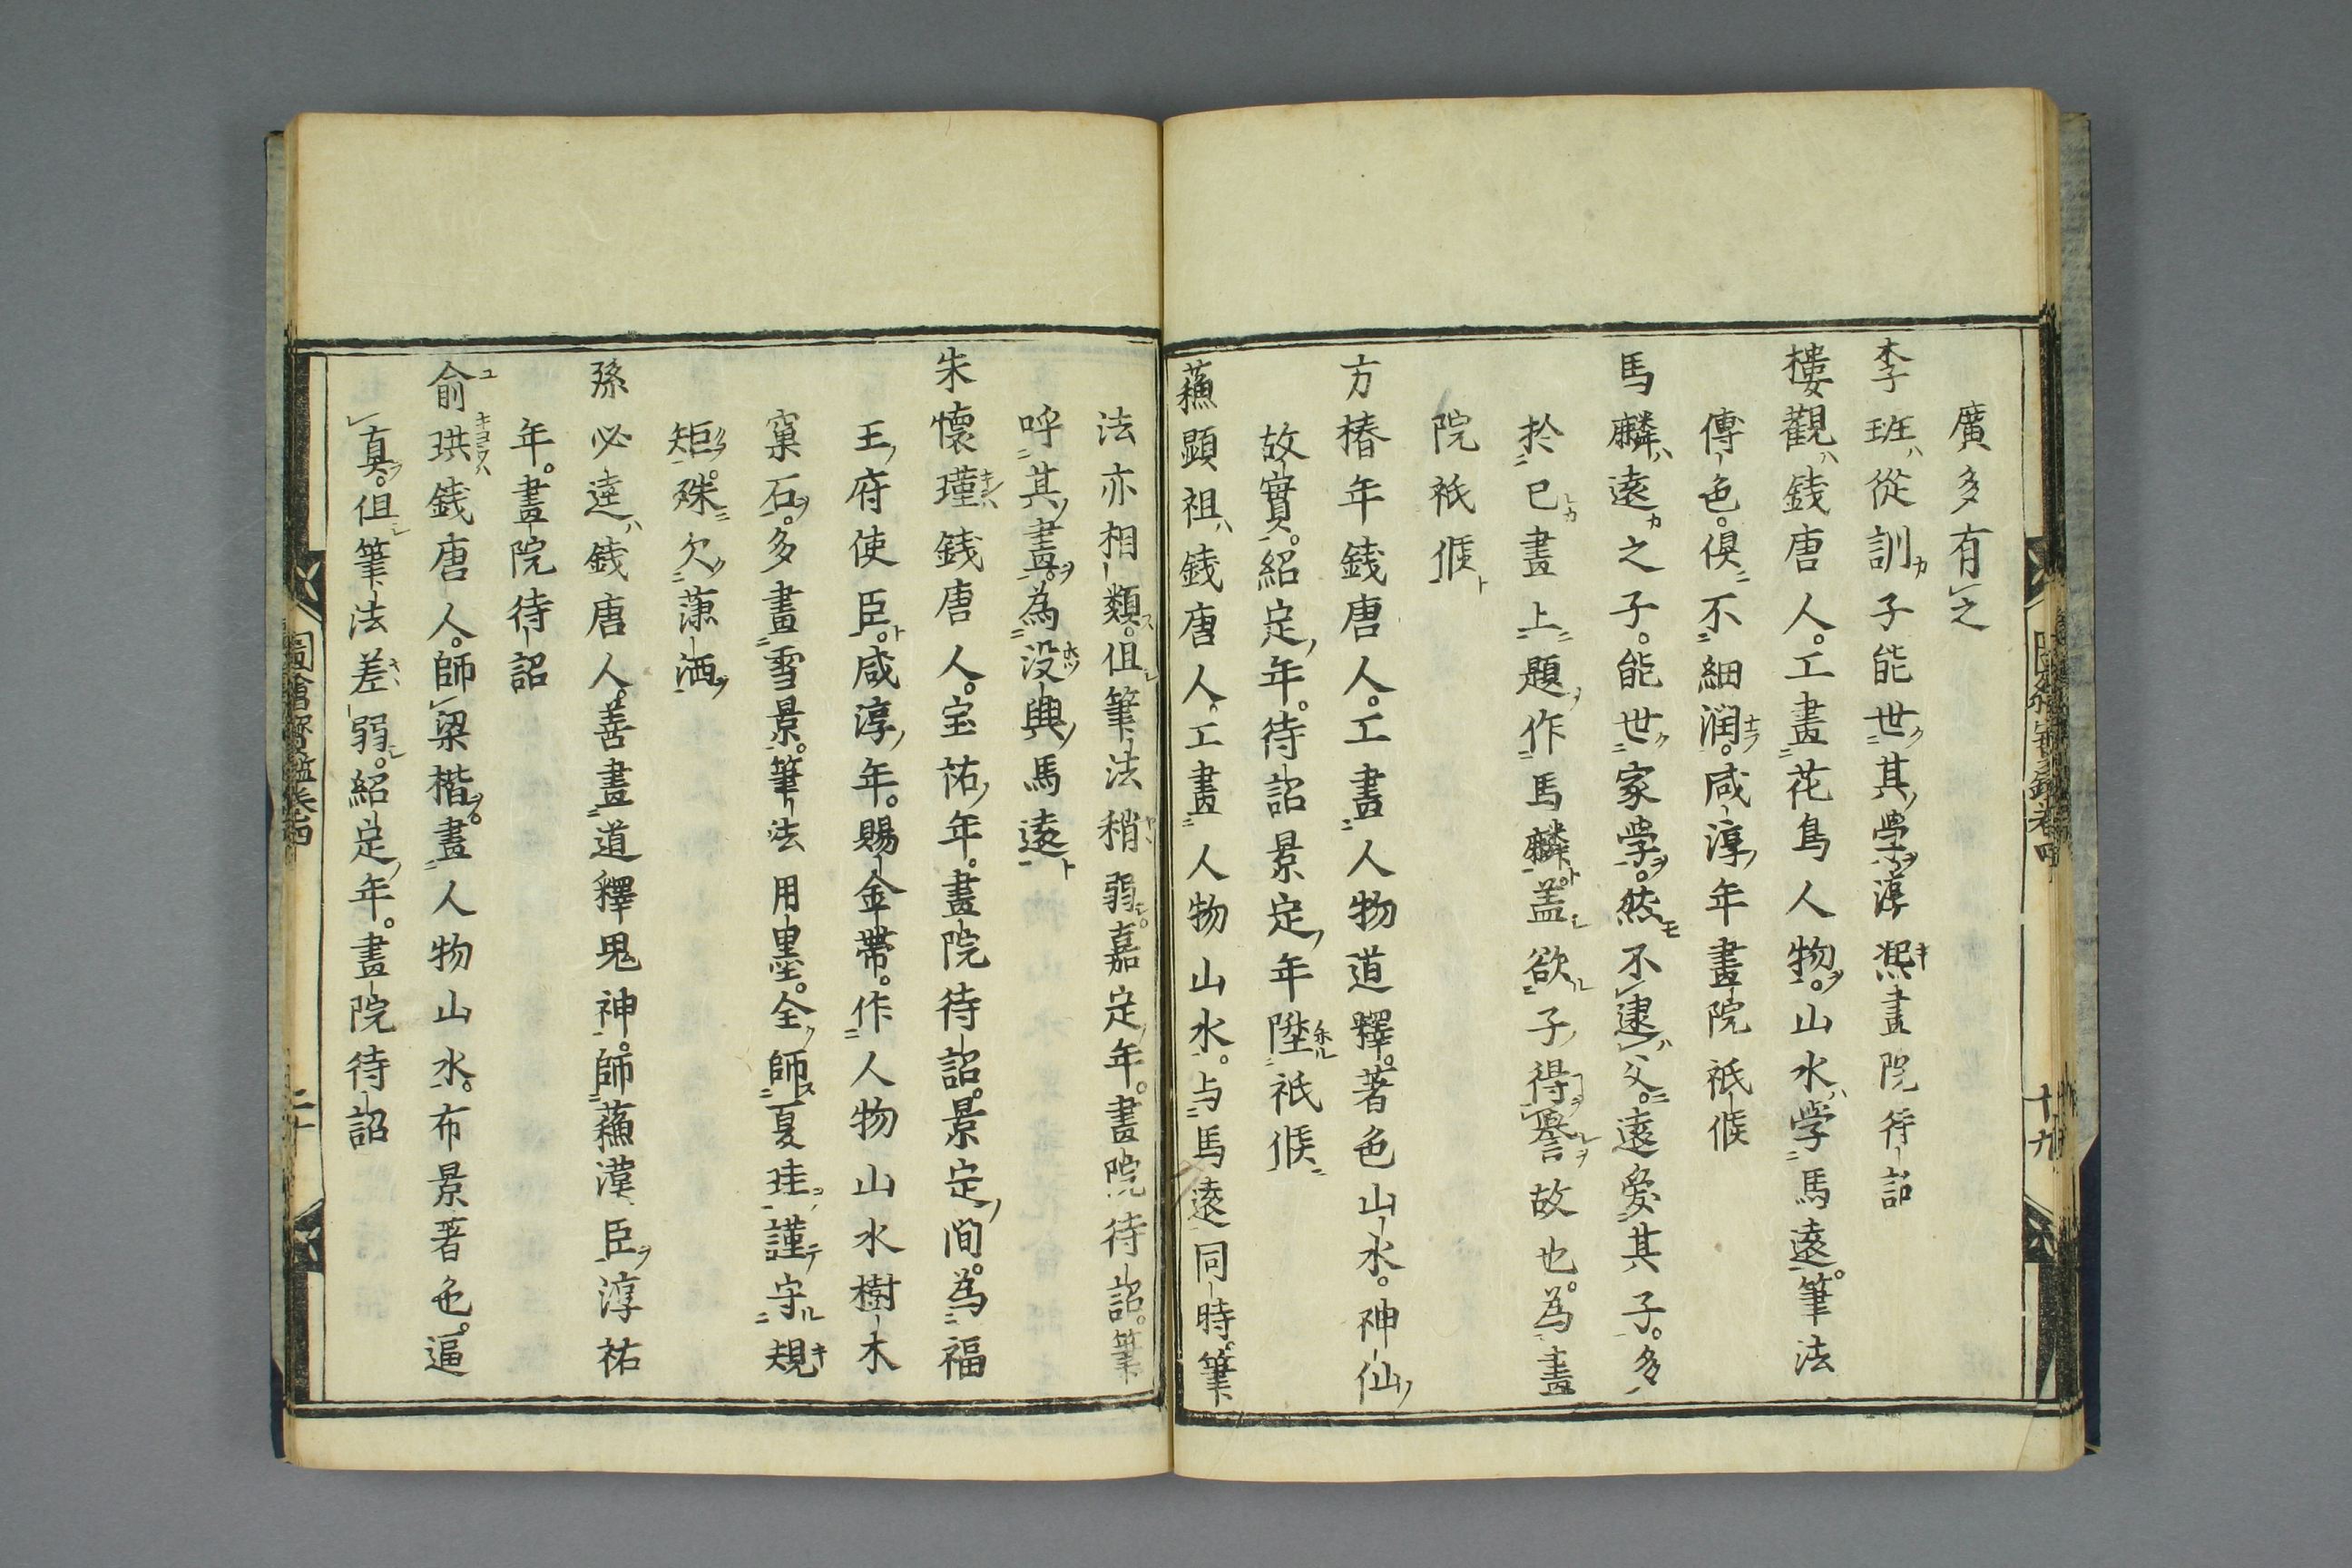 廣多有之
李班從訓子能世其學淳熙畫院待詔
樓觀錢唐人。工畫花鳥人物。山水學馬遠。筆法
傅色。俱不細潤。咸淳年畫院祗候
馬麟遠之子。能世家學。然不逮父。遠愛其子。多
於己畫上題作馬麟。盖欲子得譽故也。為畫
院祗候
方椿年錢唐人。工畫人物道釋。著色山水。神仙
故實。紹定年。待詔景定年陞祗候
蘓顕祖錢唐人。工畫人物山水。与馬遠同時。筆
法亦相類。但筆法稍弱。嘉定年。畫院待詔。筆
呼其畫。為没興馬遠
朱懷瑾錢唐人。宝祐年。畫院待詔。景定間。為福
王府使臣。咸淳年。賜金帶。作人物山水樹木
窠石。多畫雪景。筆法用墨。全師夏珪謹守規
矩。殊欠蕭洒
孫必達錢唐人。善畫道釋鬼神。師蘓漢臣淳祐
年。畫院待詔
俞珙錢唐人。師梁楷。畫人物山水。布景著色。逼
真。但筆法差弱。紹定年。畫院待詔
圖繪寳鑑卷四
十九
二十